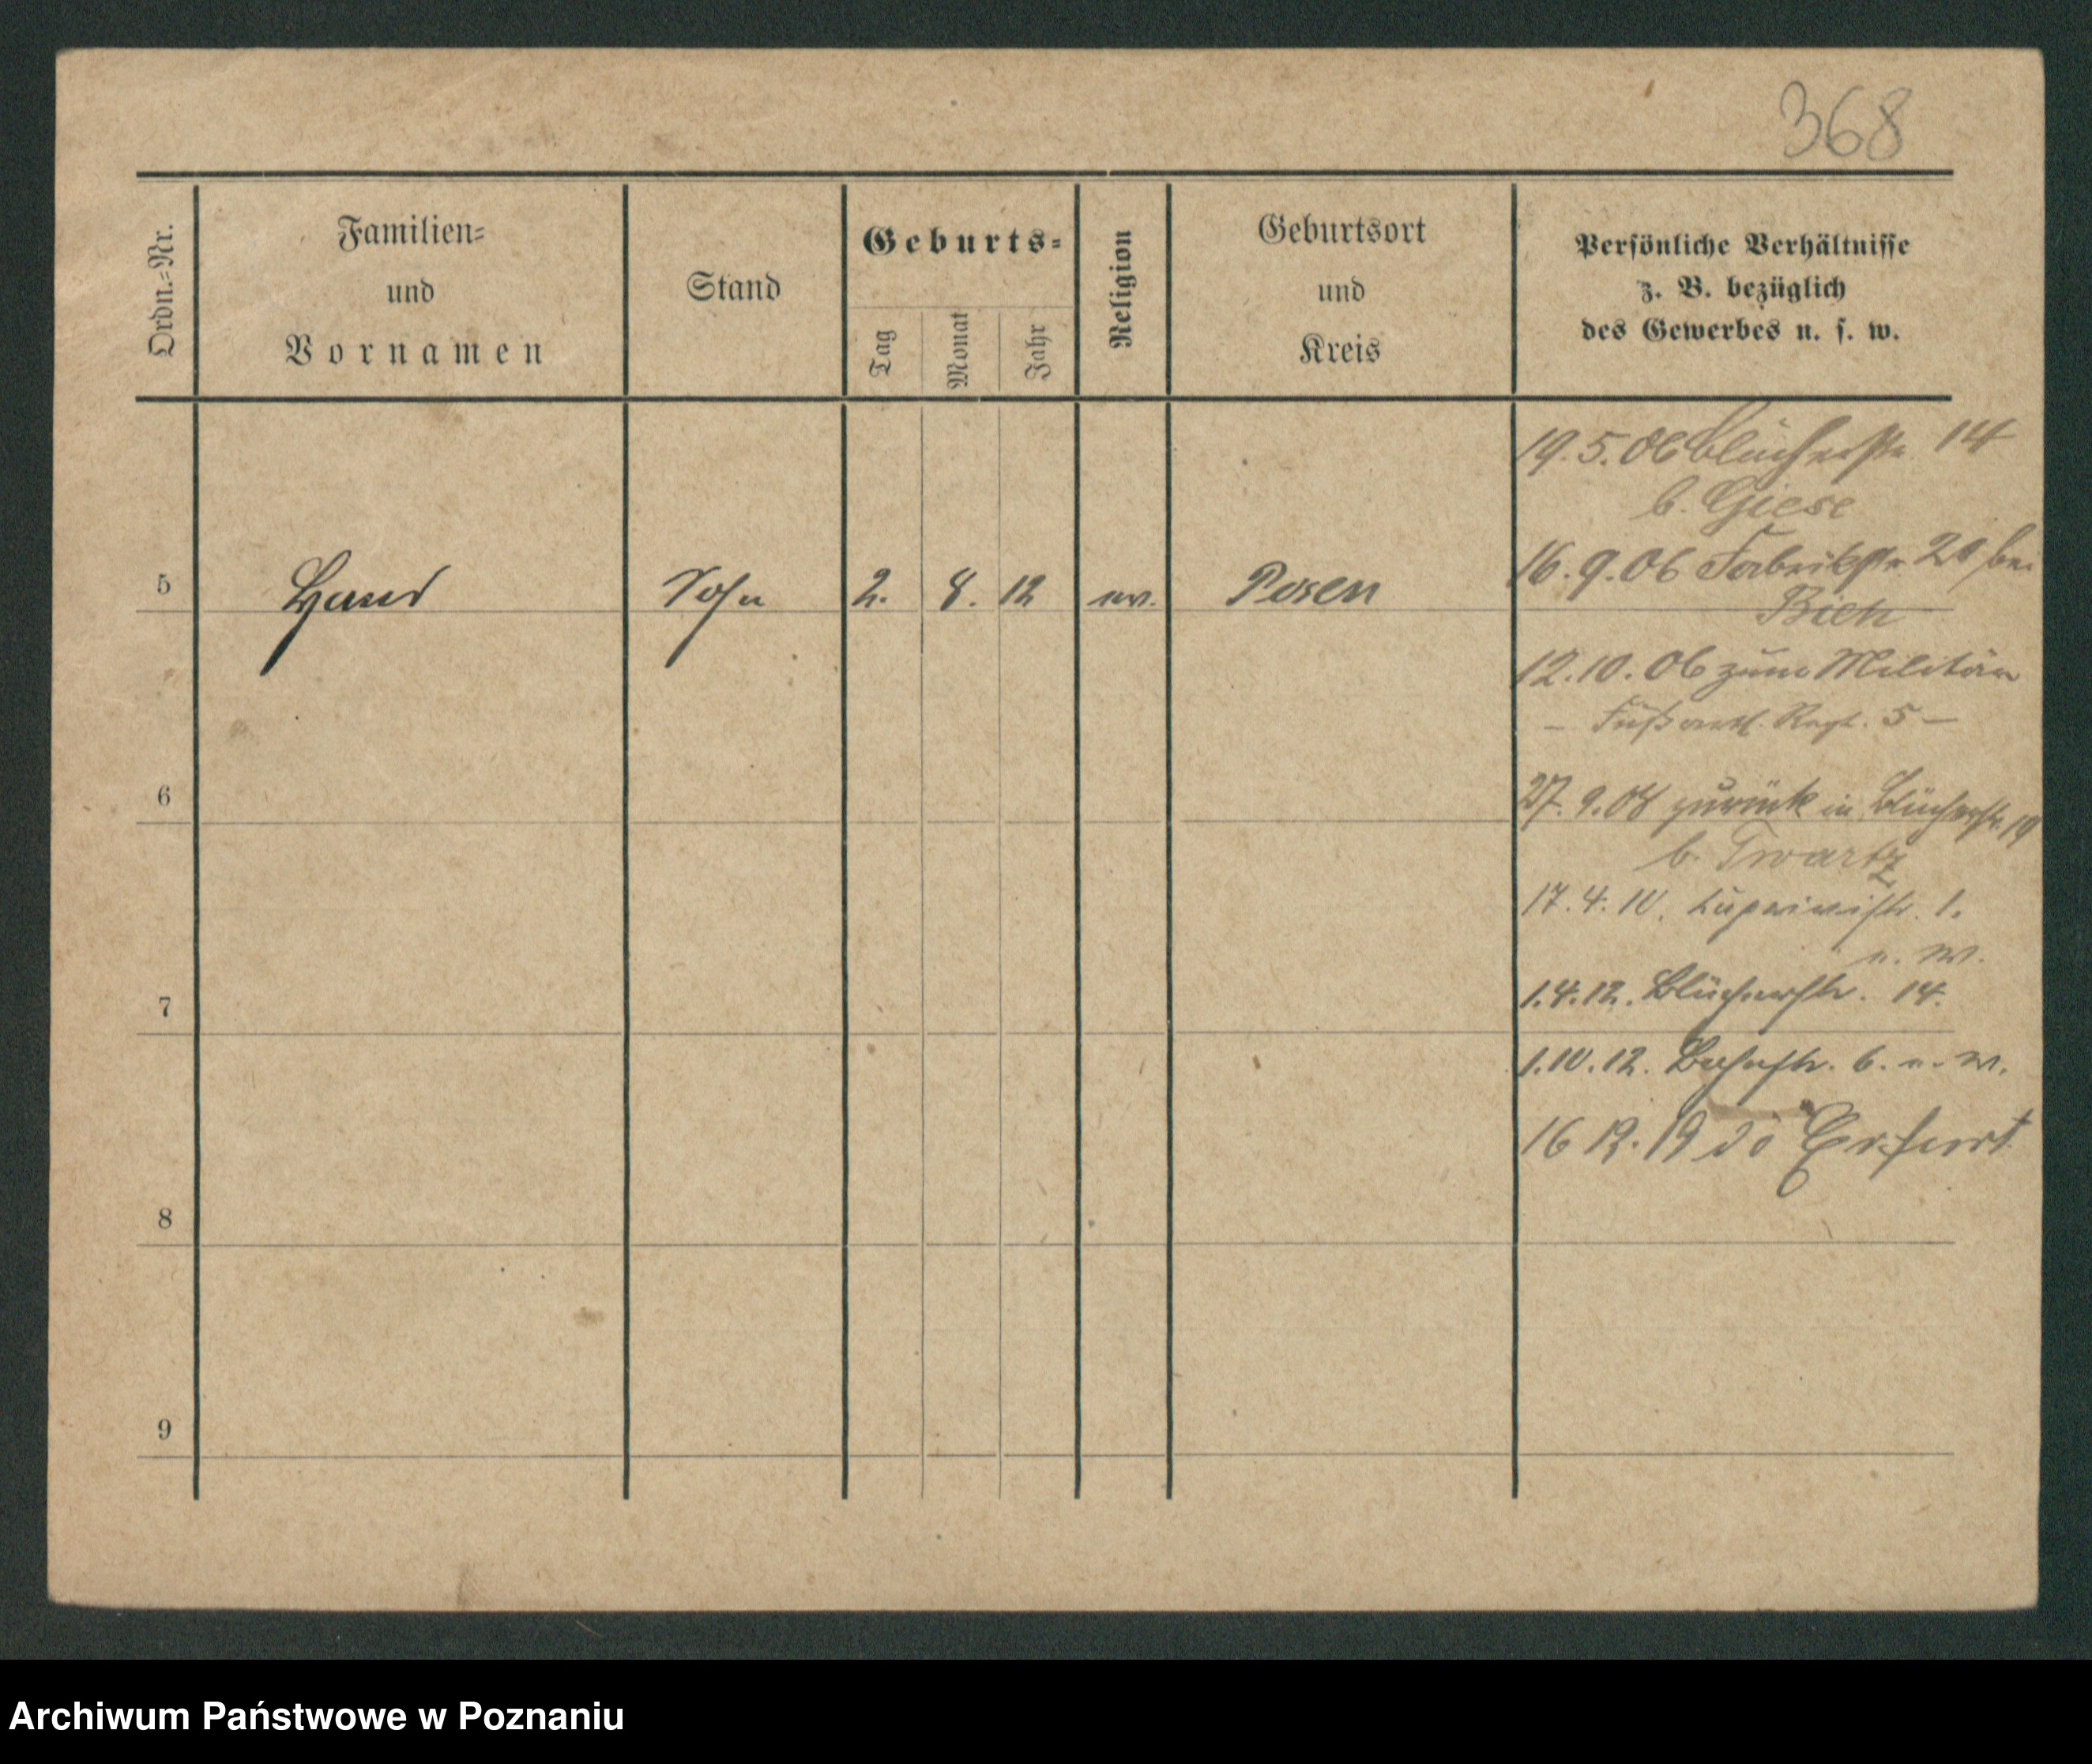 368
Ordn.=Nr.
Familien=
und
Vornamen
Stand
Geburts=
Tag
Monat
Jahr
Religion
Geburtsort
und
Kreis
Persönliche Verhältnisse
z. B. bezüglich
des Gewerbes u. s. w.
5 Hans Sohn 2. 8. 12 ev. Posen
6
7
8
9
19.5.06 Blücherstr. 14
b. Giese
16.9.06 Fabrikstr 20 bei
12.10.06 zum Militär
– Fußartl. Regt. 5 –
27.9.08 zurück in Blücherstr. 19
b. Twartz
17.4.10. 1.
u. W.
1.4.12. Blücherstr. 14.
1.10.12. Bahnstr. 6. u. W.
16 12. 19 Erfurt
Archiwum Państwowe w Poznaniu